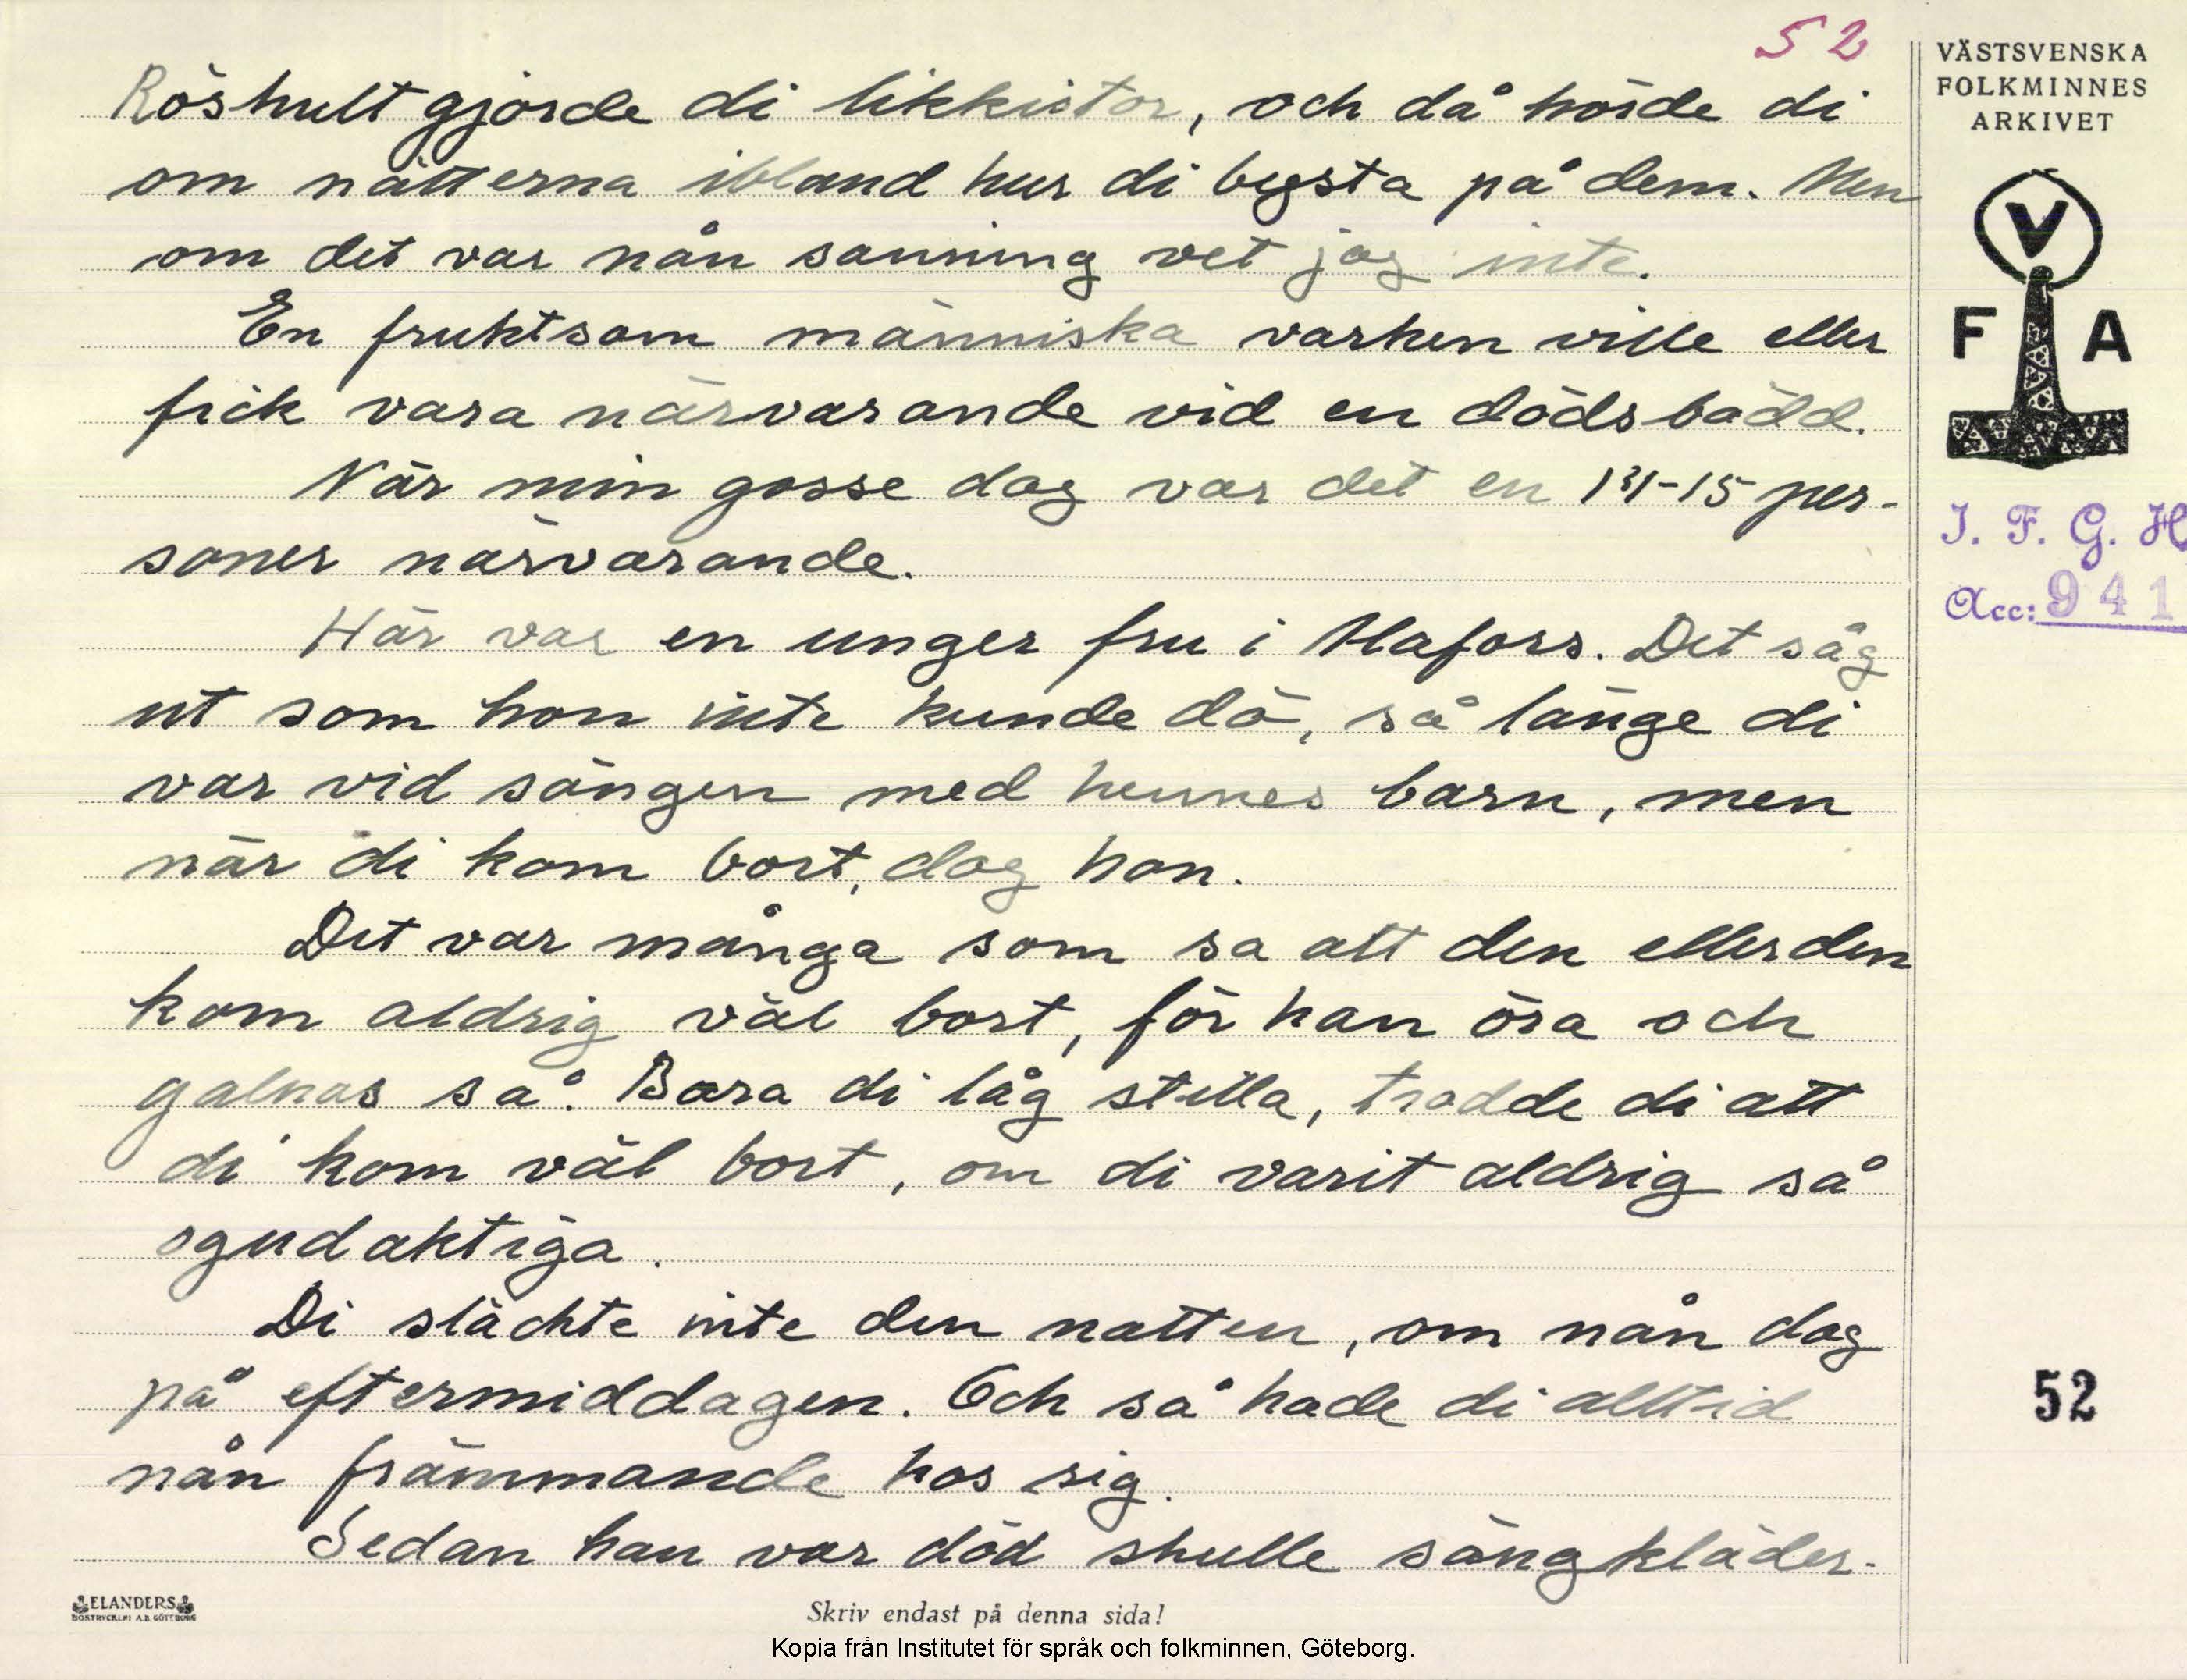 52
Röshult gjorde di likkistor, och då hörde di
om nätterna ibland hur di bysta på dem. Men
om det var nån sanning vet jag inte.
En fruktsam människa varken ville eller
fick vara närvarande vid en dödsbädd.
När min gosse dog var det en 14-15 per-
soner närvarande.
Här var en unger fru i Hafors. Det såg
ut som hon inte kunde dö, så länge di
var vid sängen med hennes barn, men
när di kom bort, dog hon.
Det var många som sa att den eller den
kom aldrig väl bort, för han öra och
galnas så. Bara di låg stilla, trodde di att
di kom väl bort, om di varit aldrig så
ogudaktiga.
Di släckte inte den natten, om nån dog
på eftermiddagen. Och så hade di alltid
nån främmande hos sig.
Sedan han var död skulle sängkläder-
VÄSTSVENSKA
FOLKMINNES
ARKIVET
V
F A
I. F. G. H
Acc: 941
52
ELANDERS
BOKTRYCKERI A.B. GÖTEBORG
Skriv endast på denna sida!
Kopia från Institutet för språk och folkminnen, Göteborg.